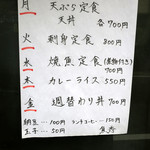 月 天ぷら定食
天丼 各700円
火 刺身定食 800円
水 焼魚定食(煮物付き)
700円
木 カレーライス 550円
金 週替わり丼 700円
納豆 100円 アイスコーヒー 150円
玉子 50円